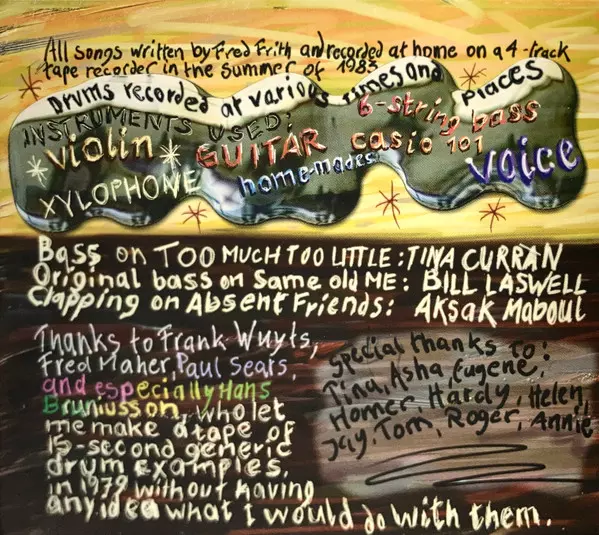 All songs written by Fred Frith and recorded at home on a 4-track
tape recorder in the summer of 1983
Drums recorded at various times and places
INSTRUMENTS USED:
violin GUITAR casio 101 6-string bass
XYLOPHONE home-mades voice
Bass on TOO MUCH TOO LITTLE: TINA CURRAN
Original bass on Same old ME: BILL LASWELL
Clapping on Absent Friends: AKSAK MABOUL
Thanks to Frank Wuyts,
Fred Maher, Paul Sears,
and especially Hans
Bruniusson, who let
me make a tape of
15-second generic
drum examples,
in 1979 without having
any idea what I would do with them.
special thanks to:
Tina, Asha, Eugene,
Homer, Hardy, Helen,
Jay, Tom, Roger, Annie